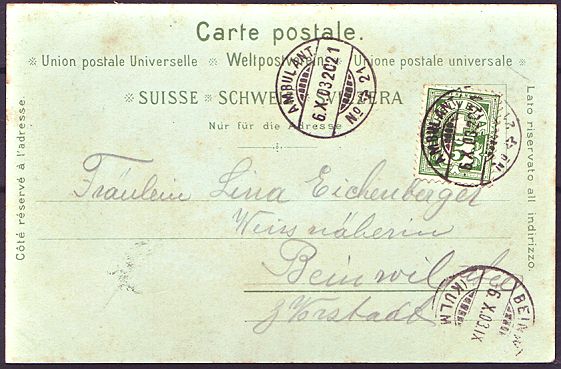 Carte postale.
* Union postale Universelle * Weltpostverein * Unione postale universale *
* SUISSE * SCHWEIZ * SVIZZERA
Nur für die Adresse
Côté réservé à l'adresse.
Lato riservato all indirizzo.
AMBULANT
6.X.03 2021
No 21
AMBULANT
6.X.03
No
Fräulein Lina Eichenberger
Weissnäherin
Beinwil
z Vorstadt
BEINW
6.X.03 IX
(KULM